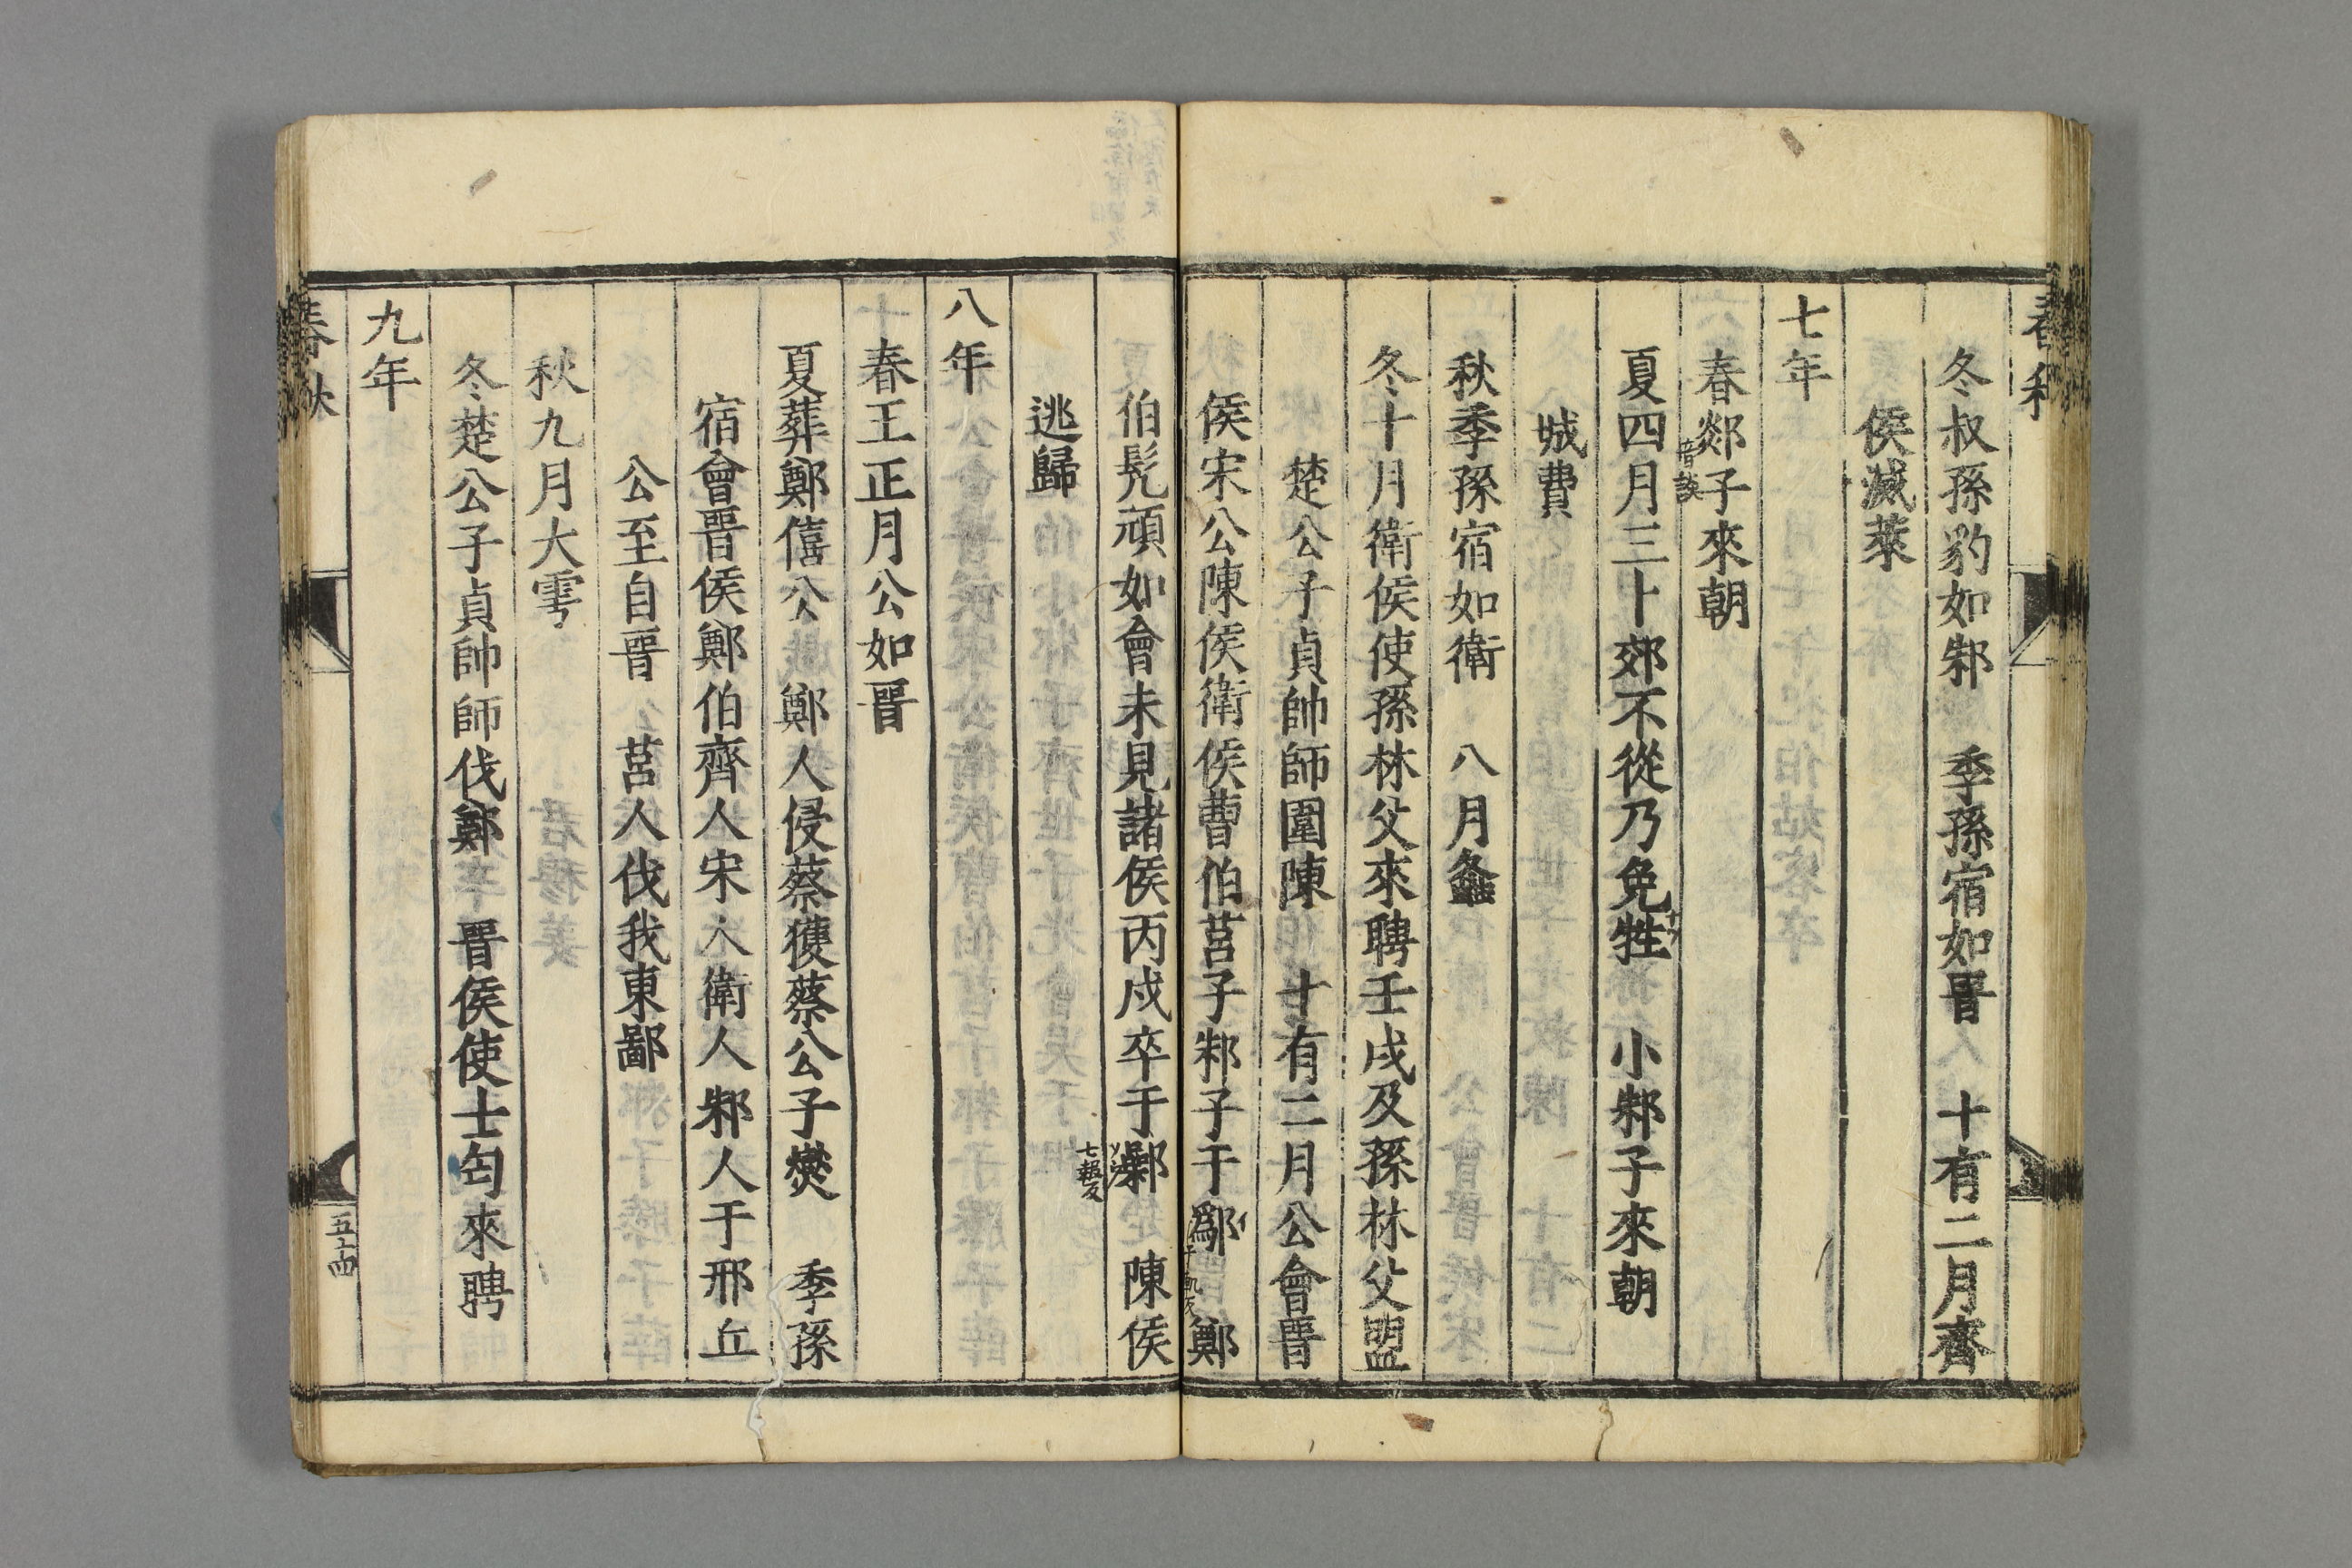 春秋
冬叔孫豹如邾　季孫宿如晉　十有二月齊
侯滅萊
七年
春郯子來朝
音談
夏四月三卜郊不從乃免牲　小邾子來朝
城費
秋季孫宿如衛　八月螽
冬十月衛侯使孫林父來聘壬戌及孫林父盟
楚公子貞帥師圍陳　十有二月公會晉
侯宋公陳侯衛侯曹伯莒子邾子于鄬鄭
伯髡頑如會未見諸侯丙戌卒于鄵　陳侯
七報反
逃歸
八年
春王正月公如晉
夏葬鄭僖公　鄭人侵蔡獲蔡公子燮　季孫
宿會晉侯鄭伯齊人宋人衛人邾人于邢丘
公至自晉　莒人伐我東鄙
秋九月大雩
冬楚公子貞帥師伐鄭　晉侯使士匄來聘
九年
春秋